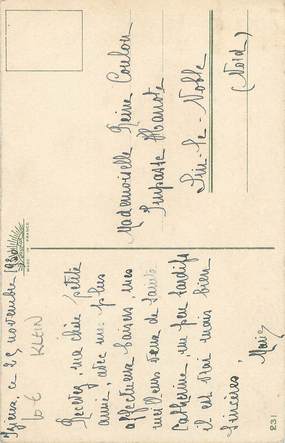 ce 25 novembre 1930
Recevez, ma chère petite
amie, avec mes plus
affectueux baisers, mes
meilleurs vœux de Sainte
Catherine, un peu tardifs
il est vrai mais bien
sincères,
Marie
Mademoiselle Reine Coulon
Impasse
Sin-le-Noble
(Nord)
10 € KLEIN
231